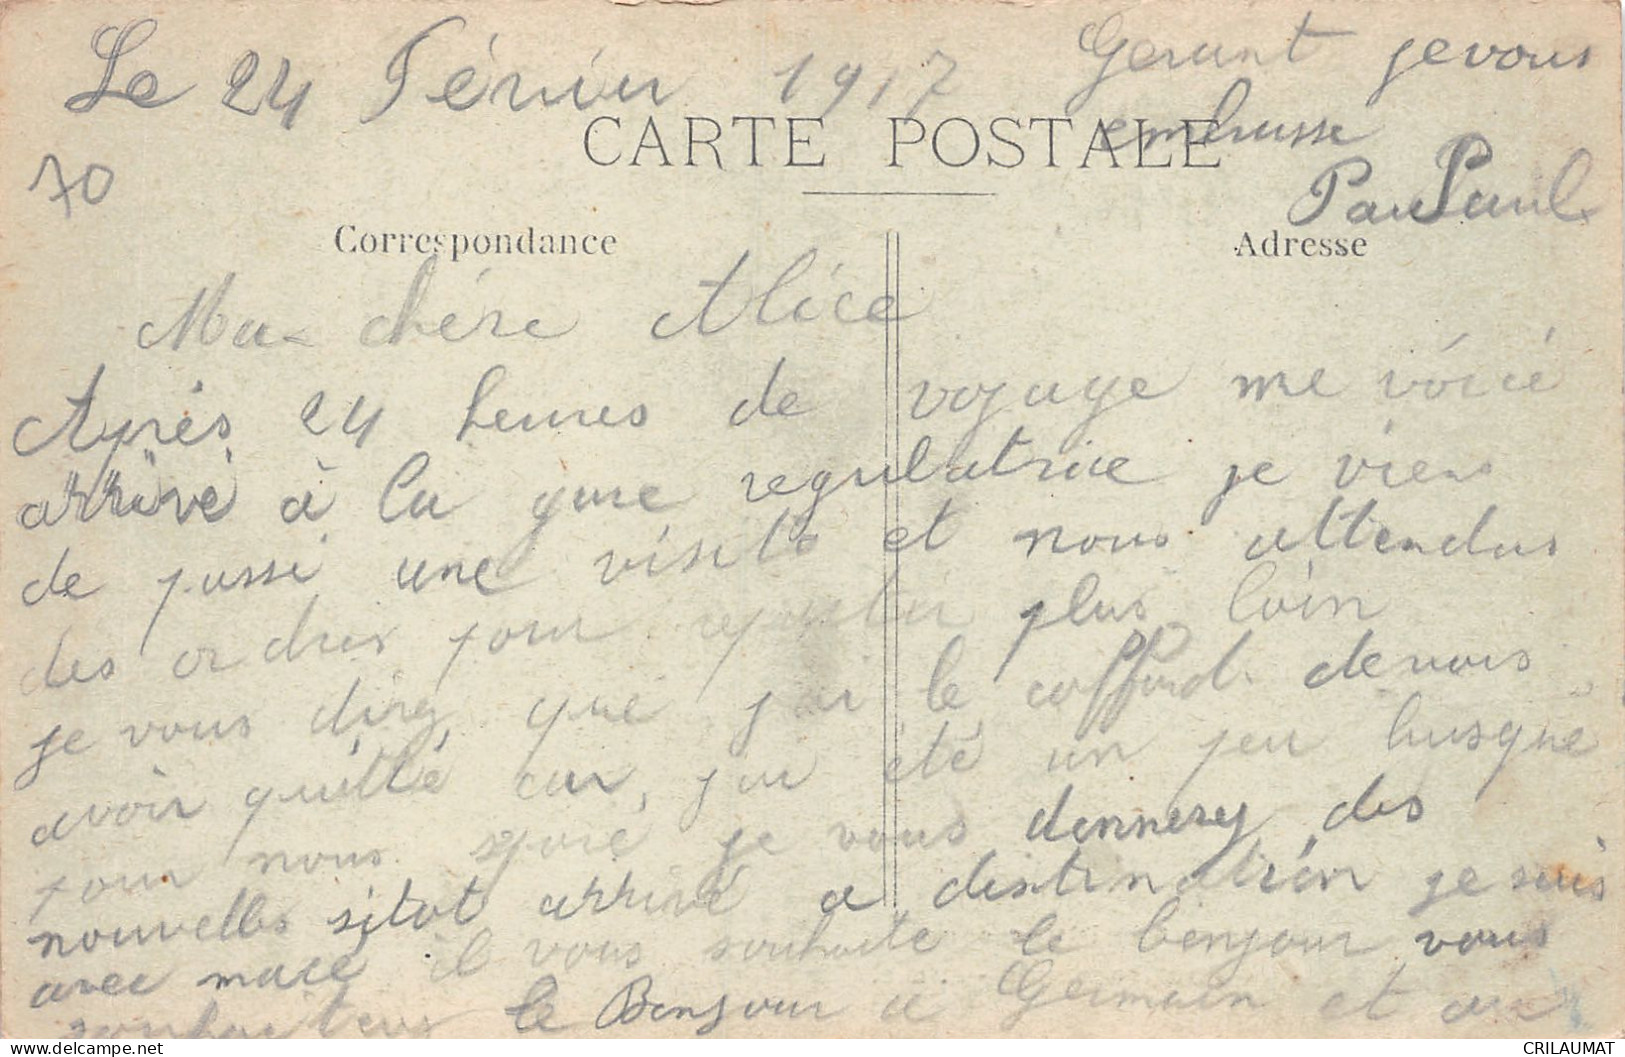 Le 24 Févrièr 1917
Gerant je vous
embrasse
Paul Paul
70
CARTE POSTALE
Correspondance
Adresse
Ma chére Alice
Aprés 24 heures de voyage me voicié
arrivé à la gare regulatrice je viens
de passé une visite et nous attendus
des ordres pour repartir plus loin
je vous direz que j'ai le caffard de vous
avoir quitté car j'ai été un peu busqué
pour nous je vous donnerez des
nouvelles sitot arrivé a destination je suis
avec mace il vous souhaite le bonjour vous
souhaiterez le Bonjour à Germain et au
CRILAUMAT